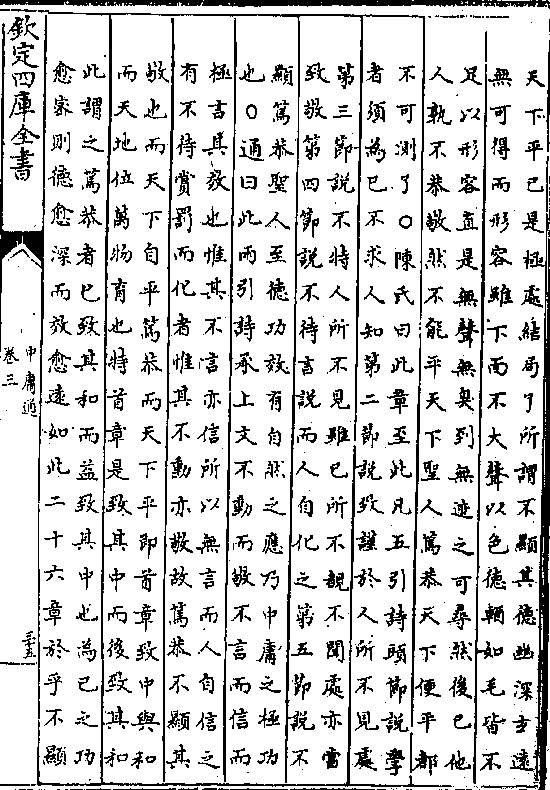 天下平已是極處結局了所謂不顯其德幽深玄遠
無可得而形容雖下而不大聲以色德輶如毛皆不
足以形容直是無聲無臭到無迹之可尋然後已他
人孰不恭敬然不能平天下聖人篤恭天下便平都
不可測了○陳氏曰此章至此凡五引詩頭節說學
者須為已不求人知第二節說致謹於人所不見處
第三節說不特人所不見雖已所不覩不聞處亦當
致敬第四節說不待言說而人自化之第五節說不
顯篤恭聖人至德功效有自然之應乃中庸之極功
也○通曰此而引詩承上文不動而敬不言而信而
極言其效也惟其不言亦信所以無言而人自信之
有不待賞罰而化者惟其不動亦敬故篤恭不顯其
敬也而天下自平篤恭而天下平即首章致中與和
而天地位萬物育也特首章是致其中而後致其和
此謂之篤恭者已致其和而益致其中也為已之功
愈宻則德愈深而效愈遠如此二十六章於乎不顯
欽定四庫全書
中庸通
卷三
三五